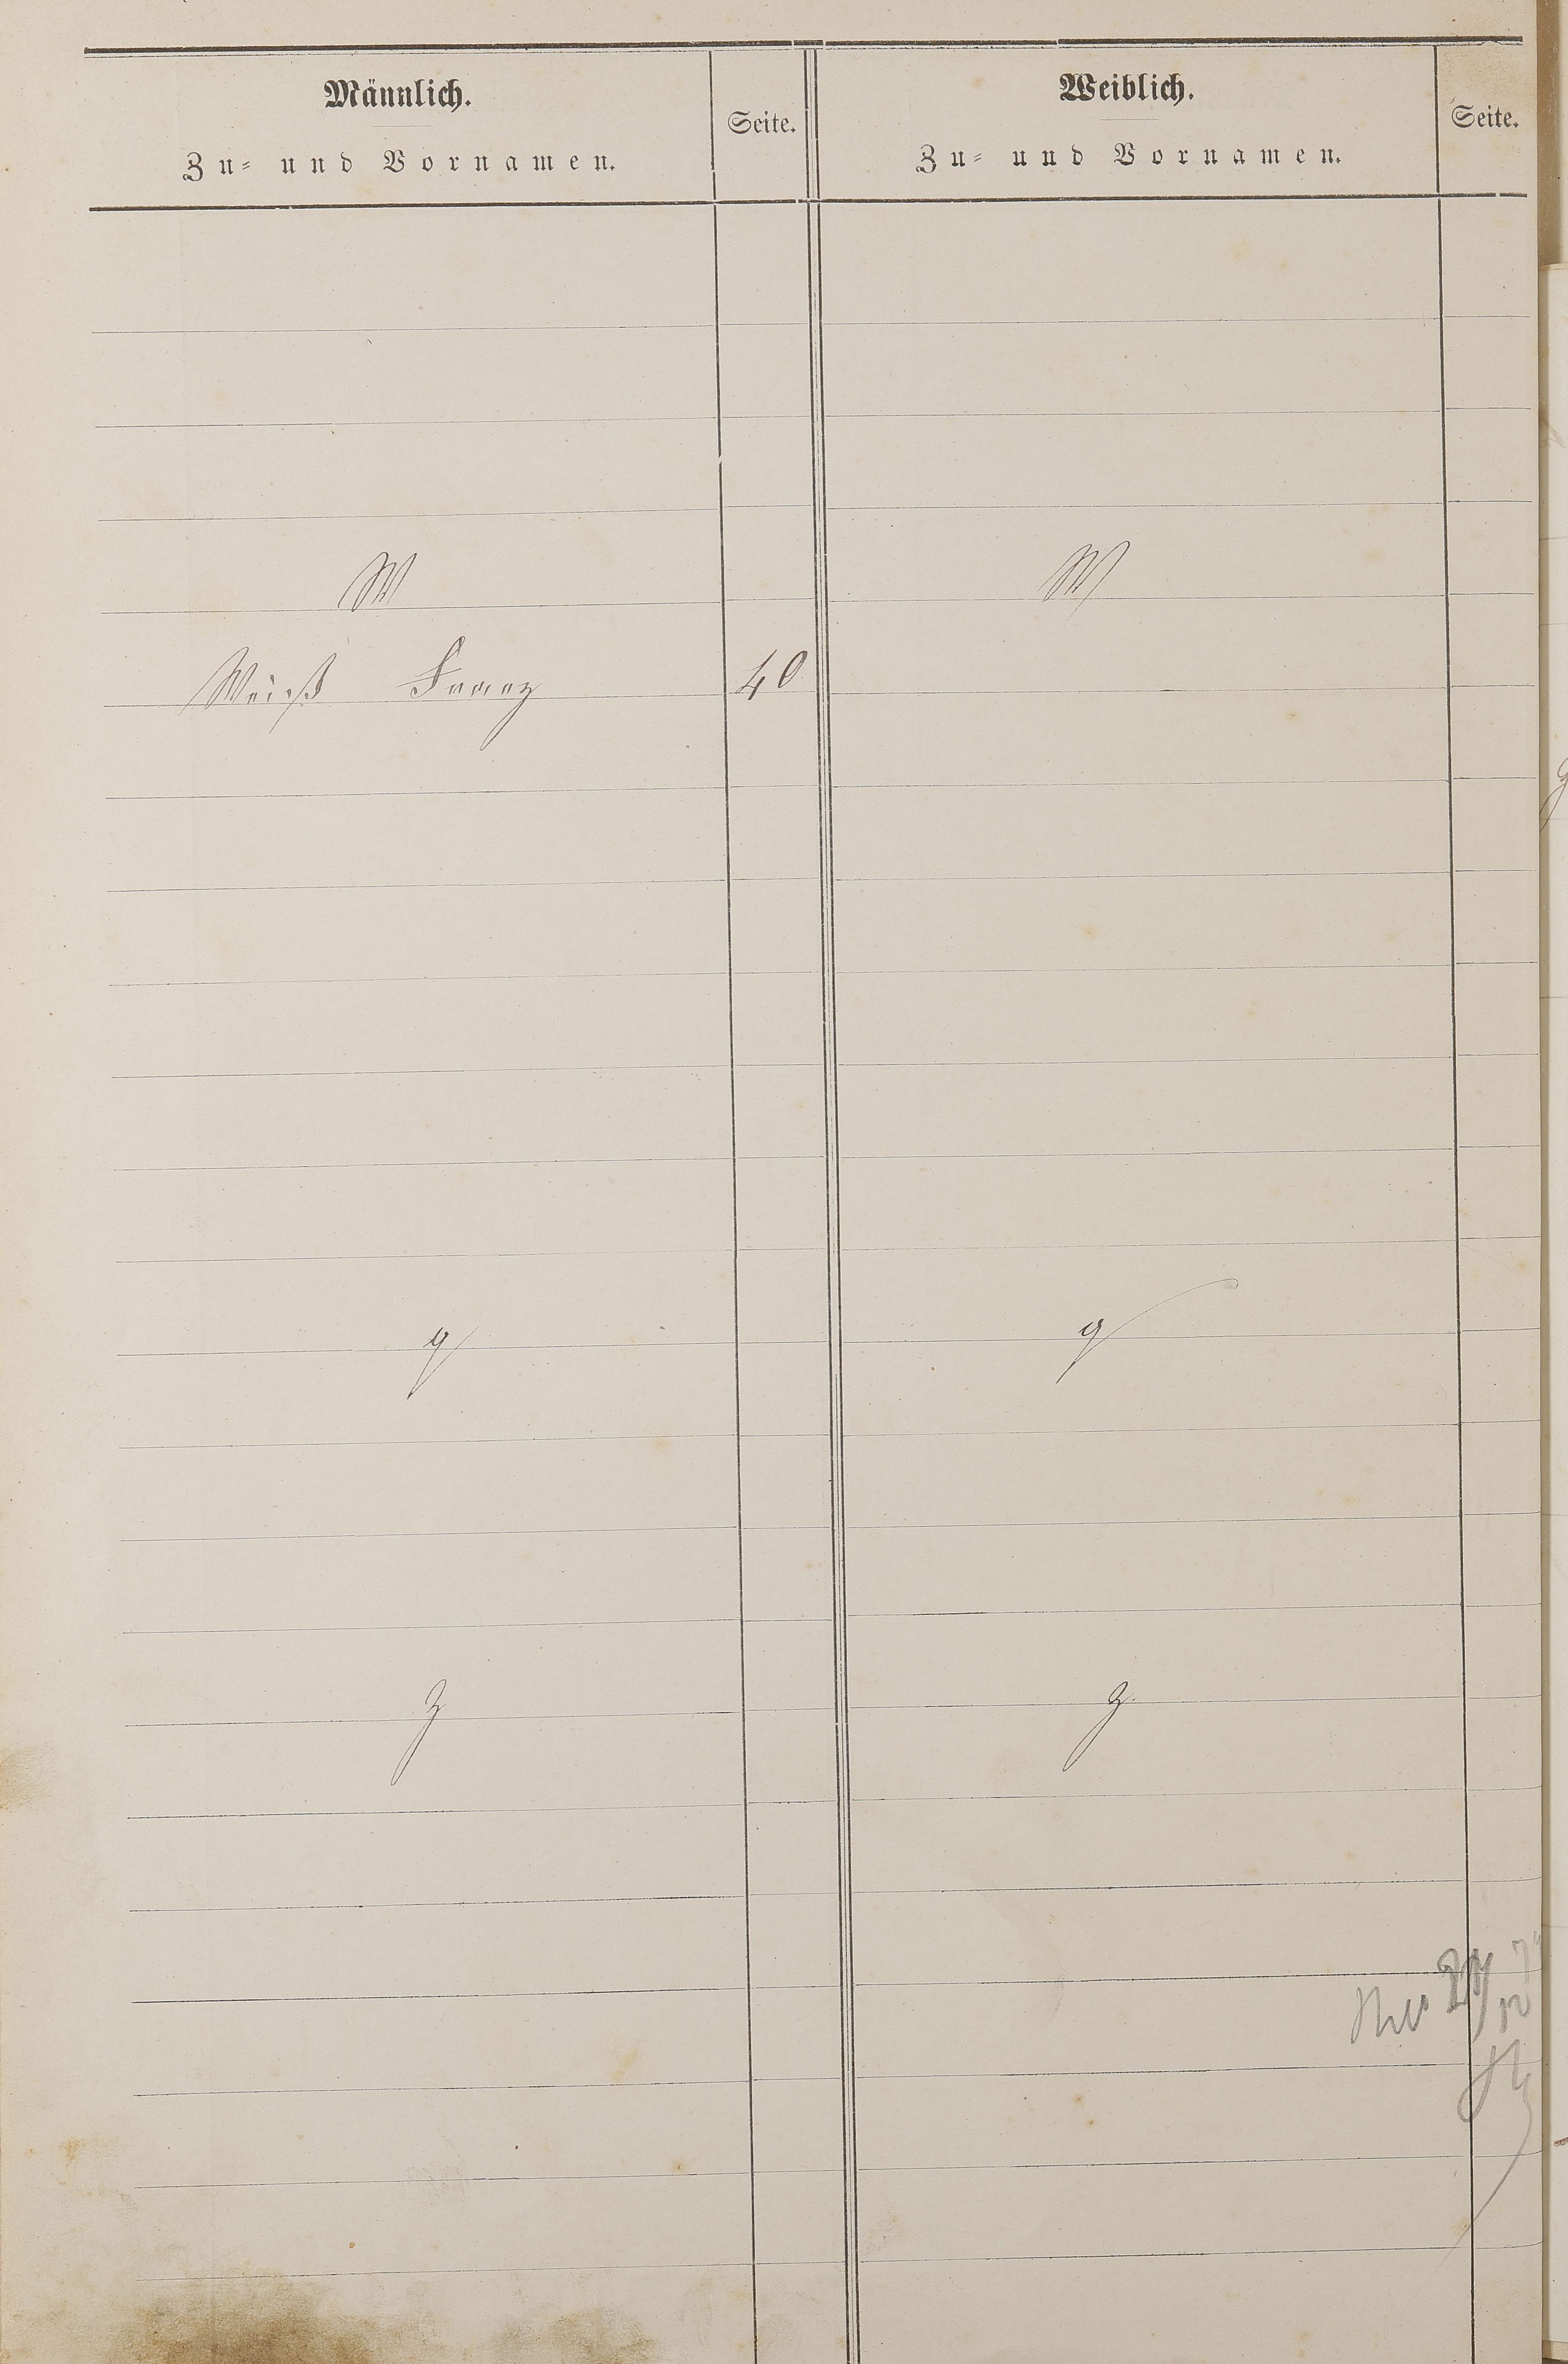 Männlich.
Zu- und Vornamen.
Seite.
Weiblich.
Zu- und Vornamen.
Seite.
W
W
Weiß Franz 40
y
y
z
z